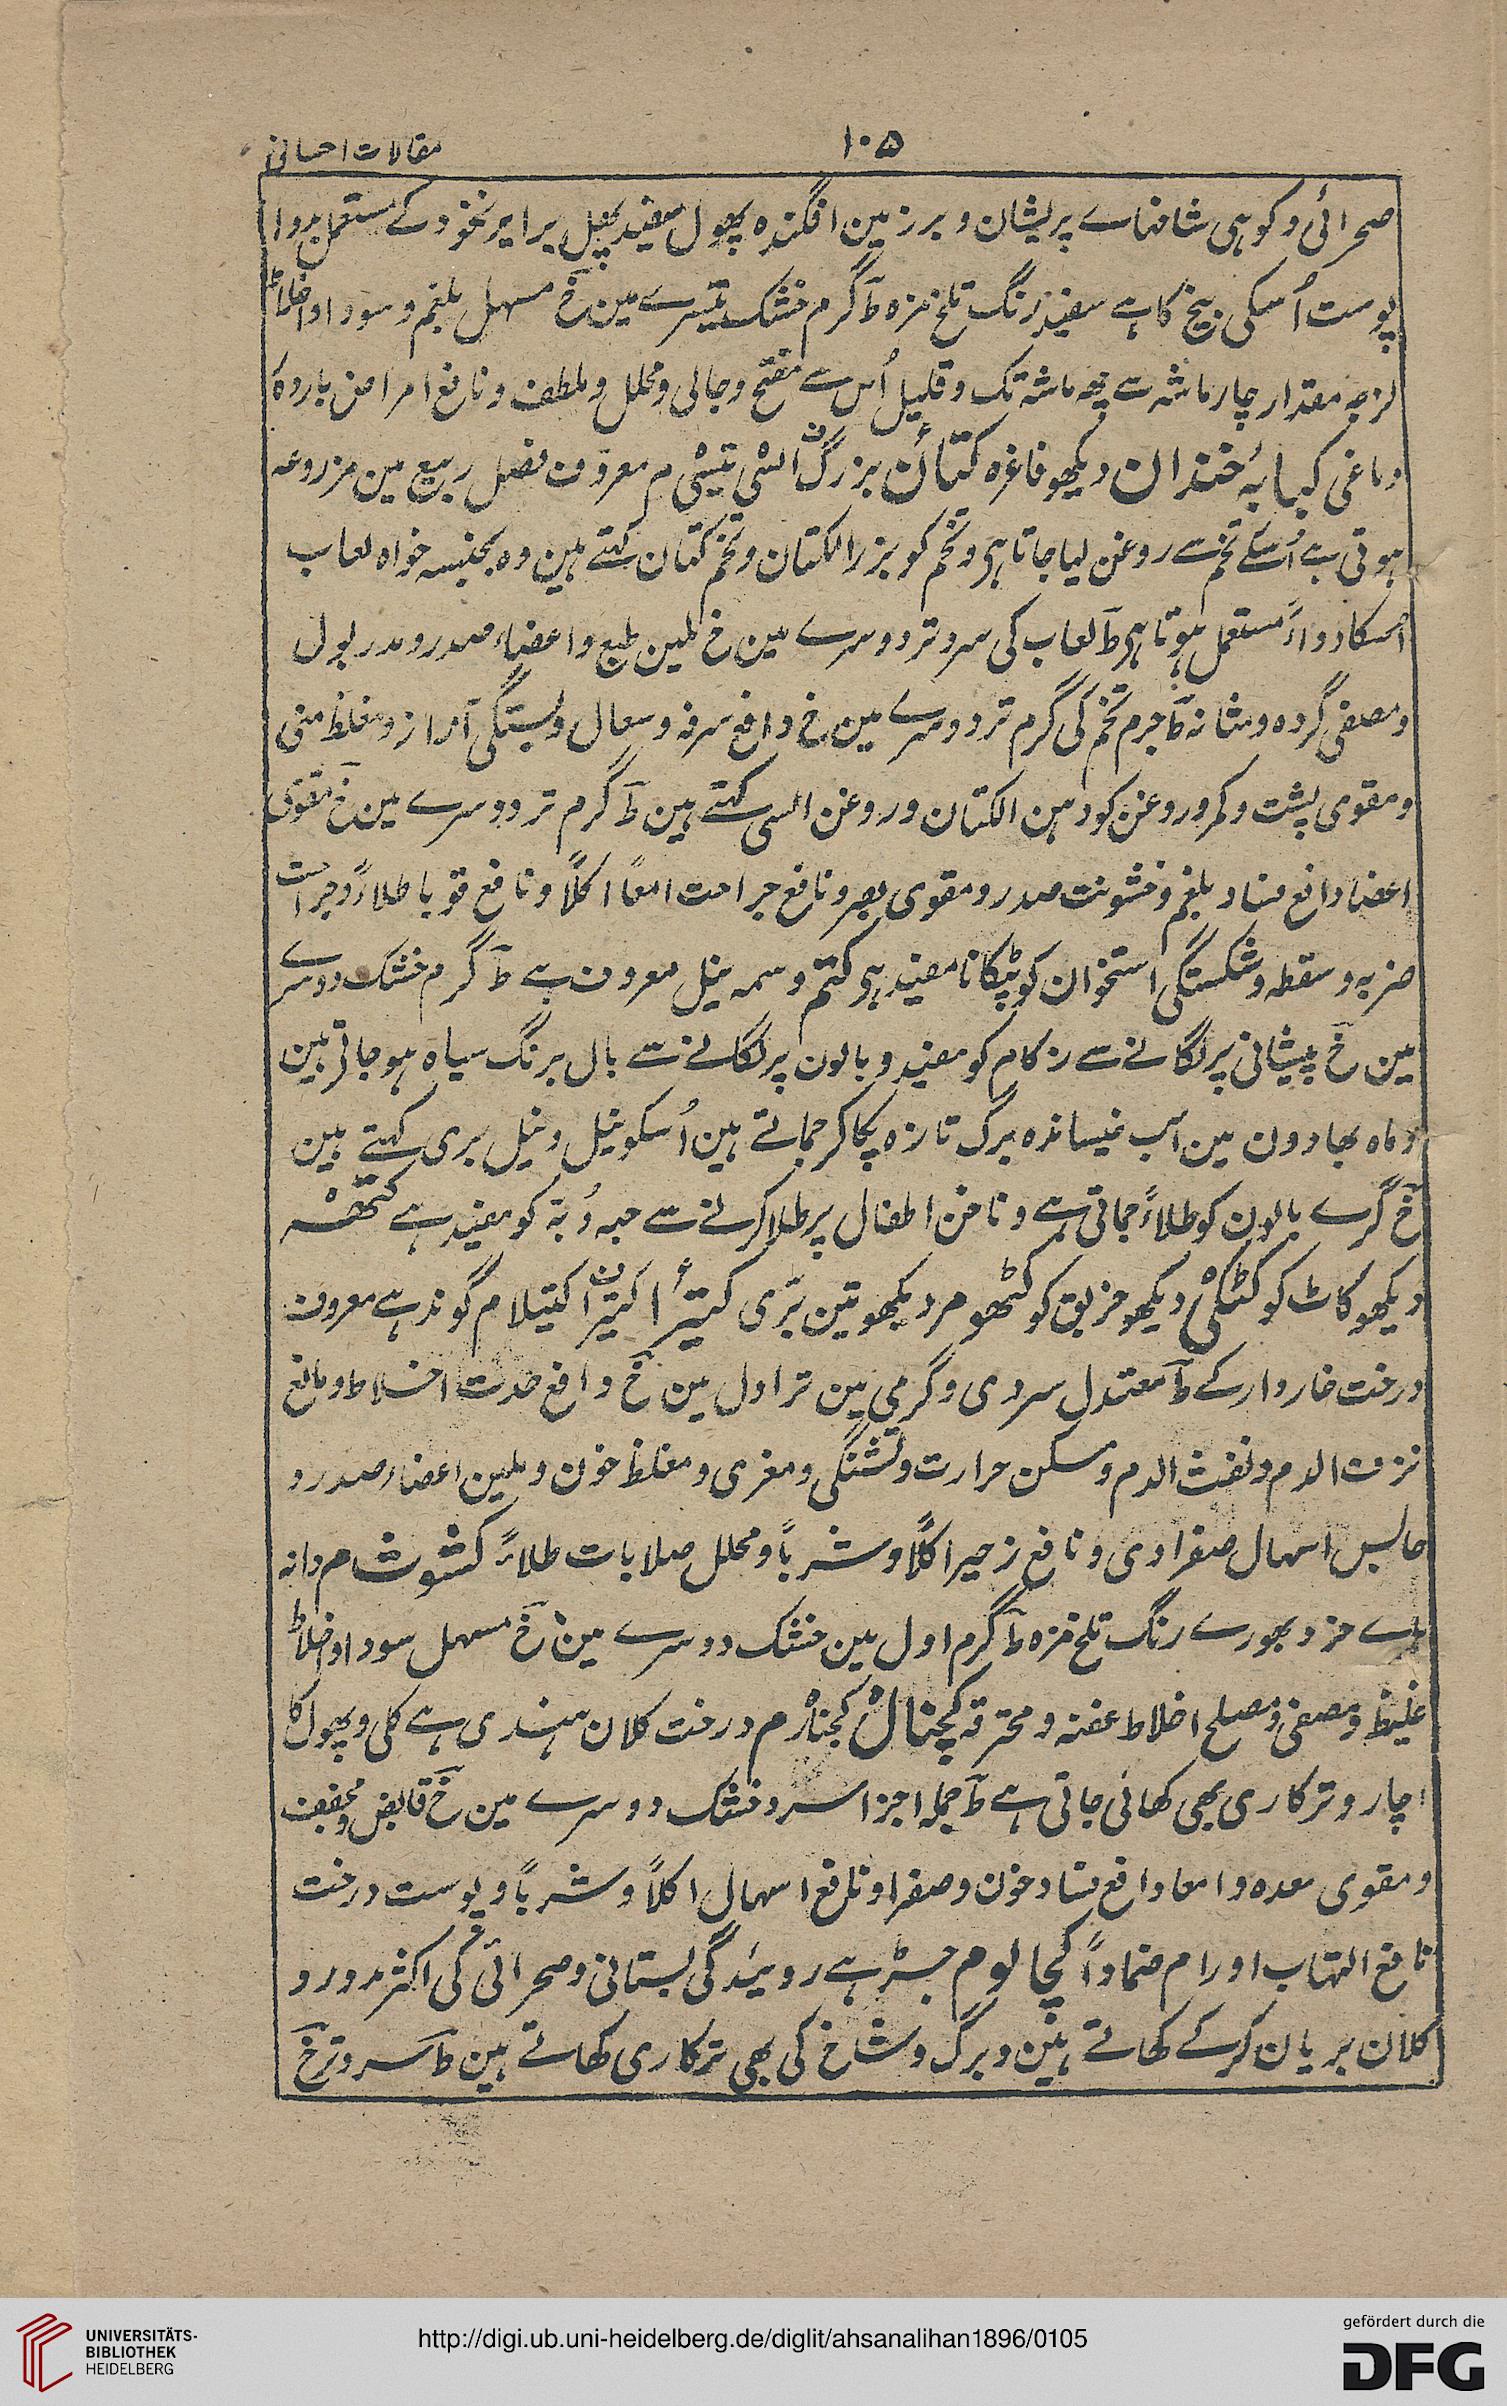 ۱۰۵
مقالات احسانی
صحرائی و کوہی شاخہاے پریشان و برزمین افگندہ پھول سفید پھل برابر نخود کے مستعمل
پوست اُسکی بیخ کا ہے سفید رنگ تلخ مزہ طَ گرم خشک تیسرے مین خَ مسہل بلغم و سودا و اخلاط
لزجہ مقدار چار ماشہ سے چھ ماشہ تک و قلیل اُس سے مفتح و جالی و محلل و ملطف و نافع امراض باردہ
دماغی کبابہٴ خندان دیکھو فاغرہ کتان بزرگ السی تیسی م معروف فصل ربیع مین مزروعہ
ہوتی ہے اُسکے تخم سے روغن لیا جاتا ہی و تخم کو بزرالکتان و تخم کتان کہتے ہین وہ بجنسہ خواہ لعاب
اُسکا دواءً مستعمل ہوتا ہی طَ لعاب کی سرد تر دوسرے مین خ ملین طبع و اعضاء صدر و مدر بول
و مصفی گردہ و مثانہ طَ جرم تخم کی گرم تر دوسرے مین خ دافع سرفہ و سعال و بستگی آواز و مغلظ منی
و مقوی پشت و کمر و روغن کو دہن الکتان و روغن السی کہتے ہین طَ گرم تر دوسرے مین خَ مقوی
اعضا دافع فساد بلغم و خشونت صدر و مقوی بصر و نافع جراحت امعا اکلاً و نافع قوبا طلاءً و جراحت
ضربہ و سقطہ و شکستگی استخوان کو ٹپکانا مفید ہی کتم وسمہ نیل معروف ہے طَ گرم خشک دوسرے
مین خَ پیشانی پر لگانے سے زکام کو مفید و بالون پر لگانے سے بال برنگ سیاہ ہو جاتے ہین
و ماہ بھادون مین آب خیساندہ برگ تازہ پکا کر جماتے ہین اُسکو نیل و نیل بری کہتے ہین
خَ گرے بالون کو طلاءً جماتی ہے و ناخن اطفال پر طلا کرنے سے حبہ دُبہ کو مفید ہے کتھہ
دیکھو کاٹ کو کٹکی دیکھو خربق کو کٹھومر دیکھو تین بَری کتیرا کتیران کتیلا م گوند ہے معروف
درخت خاردار کے طَ معتدل سردی و گرمی مین تر اول مین خَ دافع حدت اخلاط و مانع
نزف الدم و نفث الدم و مسکن حرارت و تشنگی و مغری و مغلظ خون و ملین اعضاء صدر و
حابس اسہال صفراوی و نافع زحیر اکلاً و شرباً و محلل صلابات طلاءً کشوث م دانہ
ہے خرد بھورے رنگ تلخ مزہ طَ گرم اول مین خشک دوسرے مین خَ مسہل سودا و اخلاط
غلیظ و مصفی و مصلح اخلاط عفنہ و محترقہ کچنال کجنار م درخت کلان ہندی ہے کلی و پھول کا
اچار و ترکاری بھی کھائی جاتی ہے طَ جملہ اجزا سرد خشک دوسرے مین خَ قابض و مجفف
و مقوی معدہ و امعا دافع فساد خون و صفرا و نافع اسہال اکلاً و شرباً و پوست درخت
نافع التہاب اورام ضماداً کچالو م جڑ ہے روئیدگی بستانی و صحرائی کی اکثر مدور و
کلان بریان کرکے کھاتے ہین و برگ و شاخ کی بھی ترکاری کھاتے ہین طَ سرد تر خَ
UNIVERSITÄTS-
BIBLIOTHEK
HEIDELBERG
http://digi.ub.uni-heidelberg.de/diglit/ahsanalihan1896/0105
gefördert durch die
DFG